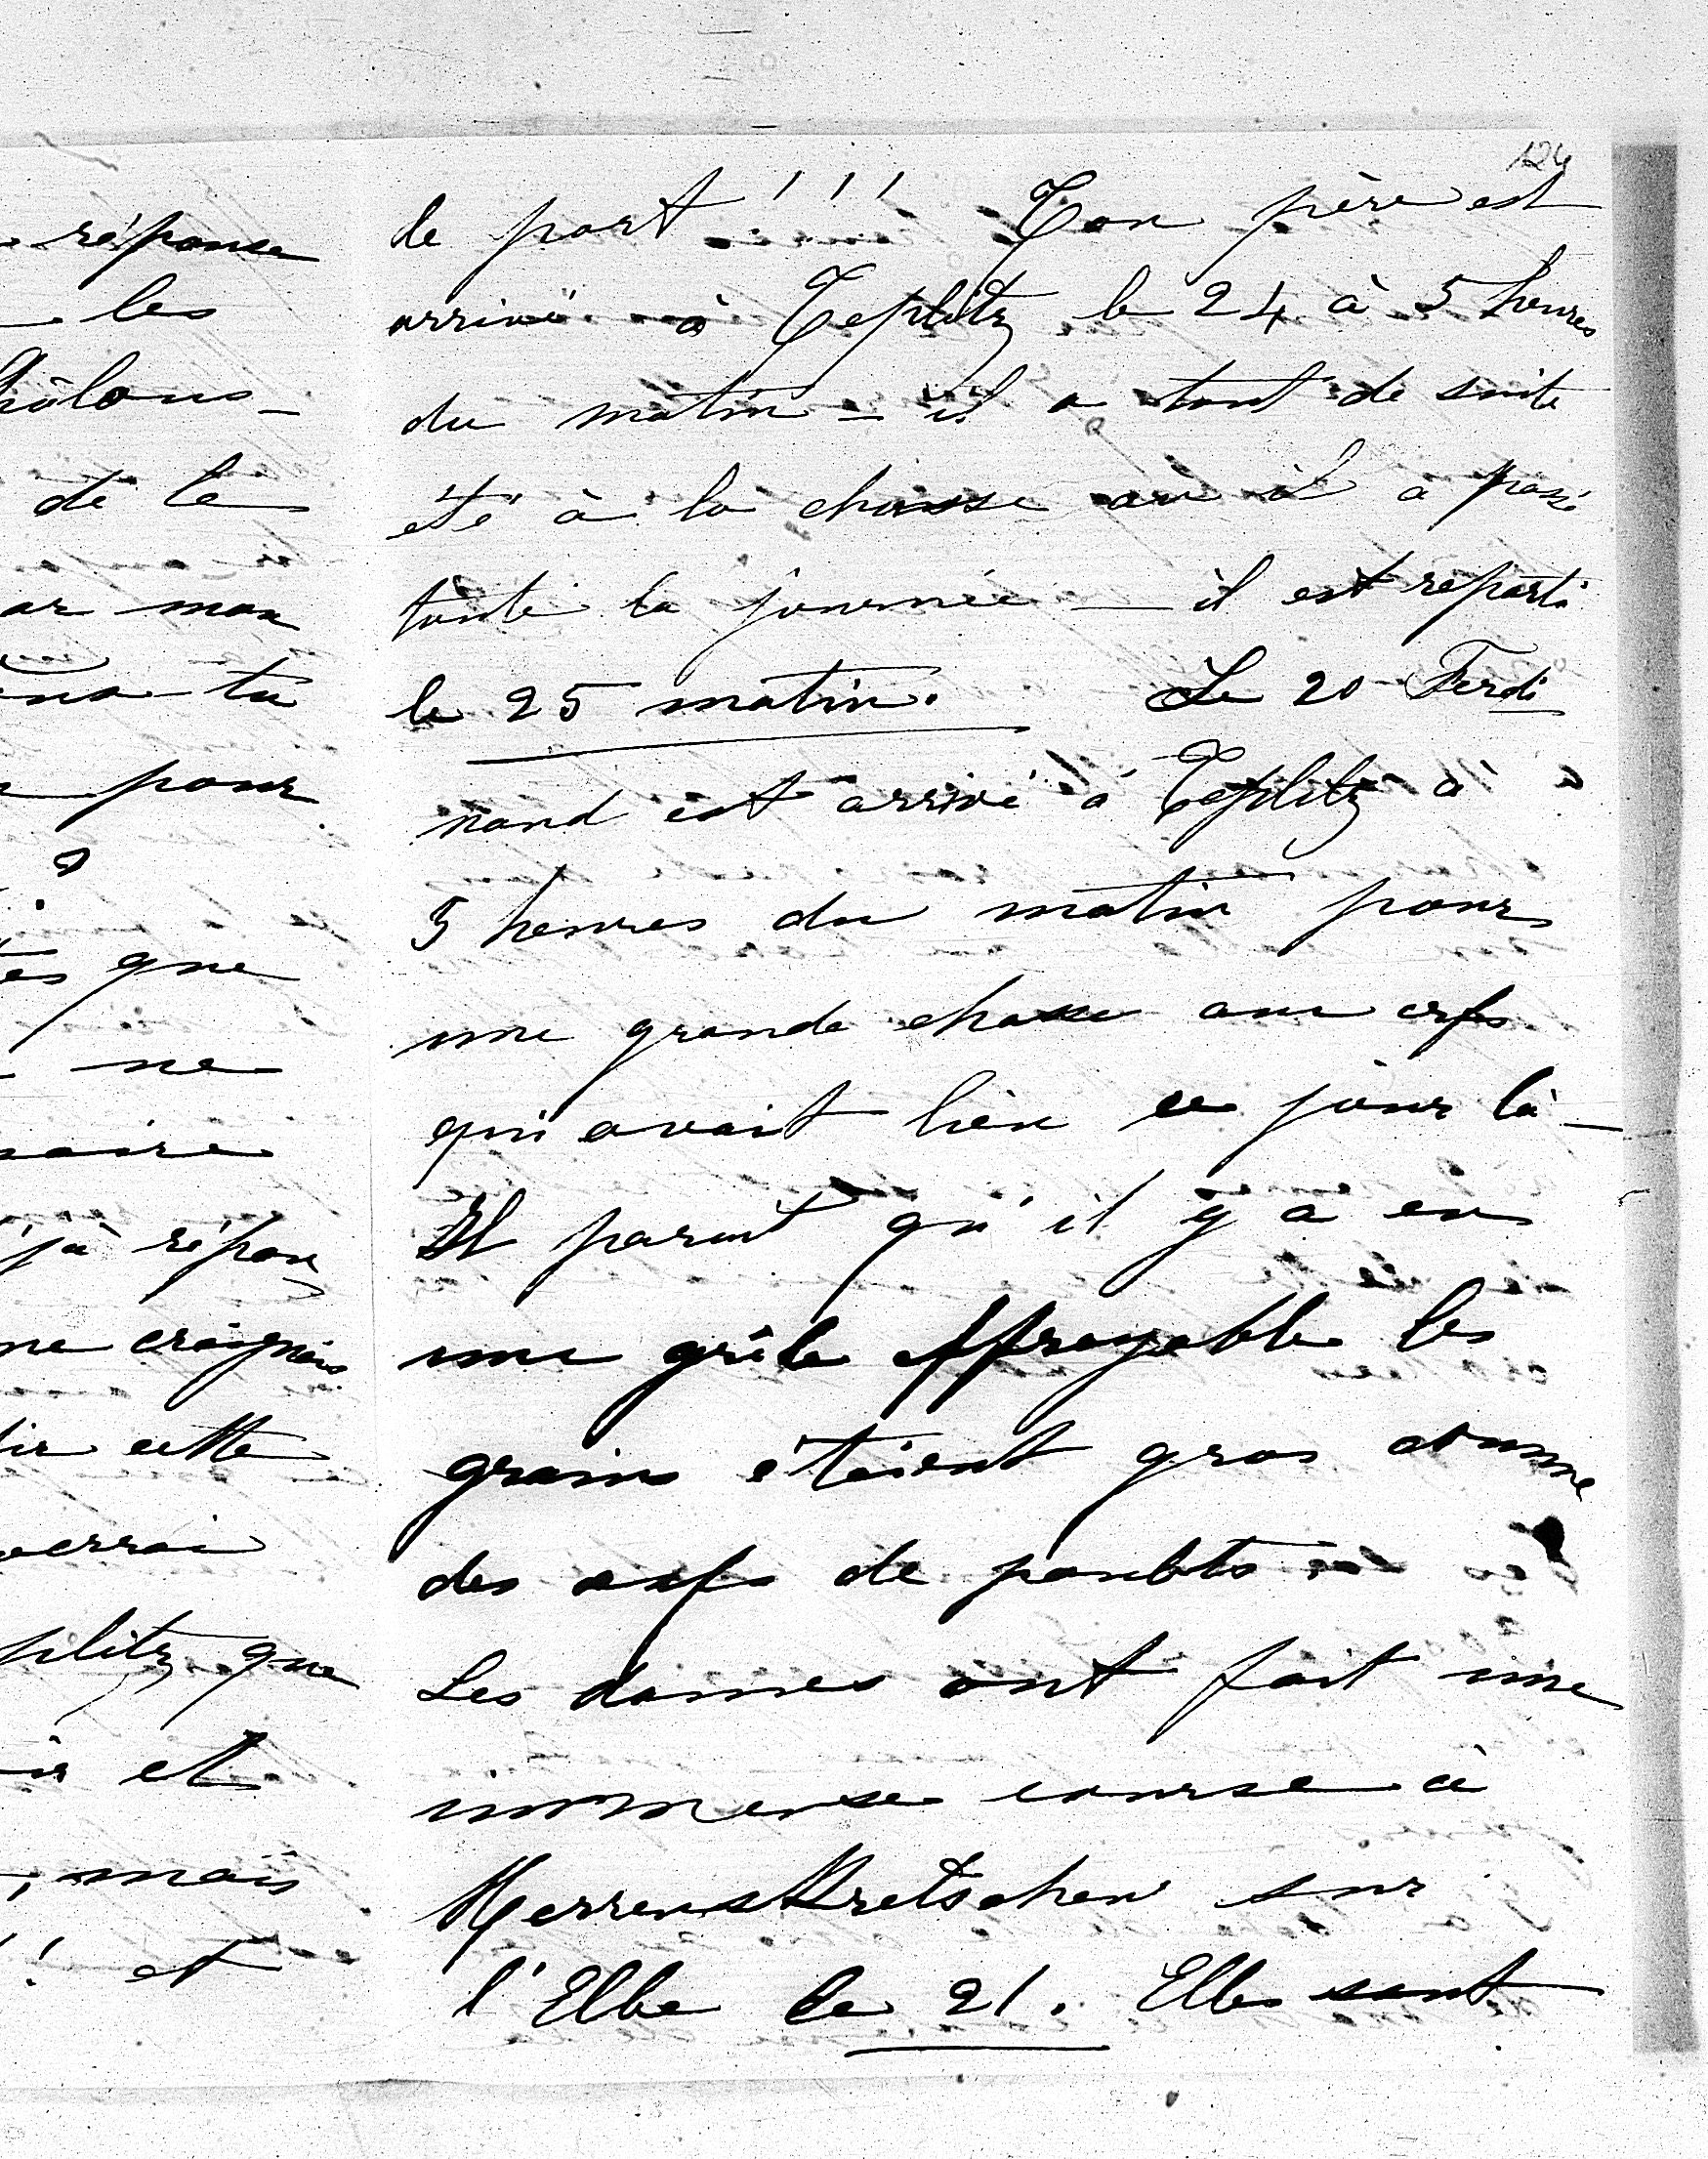 124
réponse
les
de le
mon
tu
pour
?
que
ne
répon
craignais
cette
verrai
que
et
mais
! et
de part !!! Ton père est
arrivé à Teplitz le 24 à 5 heures
du matin – il a tout de suite
été à la chasse où il a passé
toute la journée – il est reparti
le 25 matin. Le 20 Ferdi
nand est arrivé à Teplitz à
5 heures du matin pour
une grande chasse aux cerfs
qui avait lieu ce jour là –
Il parait qu'il y a eu
une grêle effroyable les
grains étaient gros comme
des œufs de poulets
Les dames ont fait une
immense course à
Herrenskretschen sur
l'Elbe le 21. Elles sont